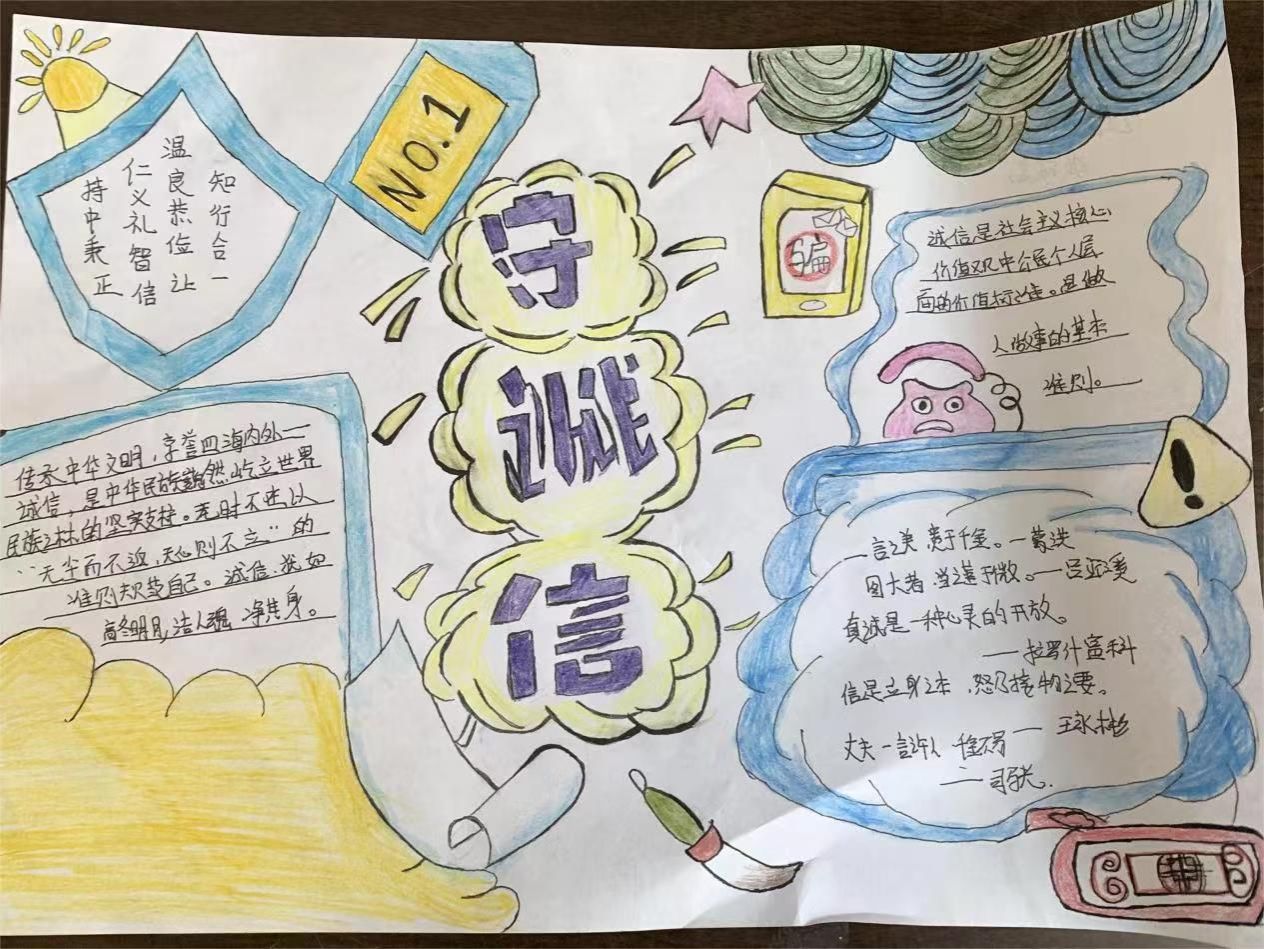 知行合一
温良恭俭让
仁义礼智信
持中秉正
NO.1
守
诚
信
骗
诚信是社会主义核心
价值观中公民个人层
面的价值标准。是做
人做事的基本
准则。
传承中华文明，享誉四海内外一
诚信，是中华民族巍然屹立世界
民族之林的坚实支柱。无时不以
“无尘而不返，无心则不立”的
准则规范自己。诚信，犹如
明月，洁人魂，净其身。
一言之美，贵于千金。—葛洪
图大者，当谨于微。—吕
真诚是一种心灵的开放。
——拉罗什富科
信是立身之本，恕乃接物之要。
——王永彬
丈夫一言许人，千金不易
——司马光.